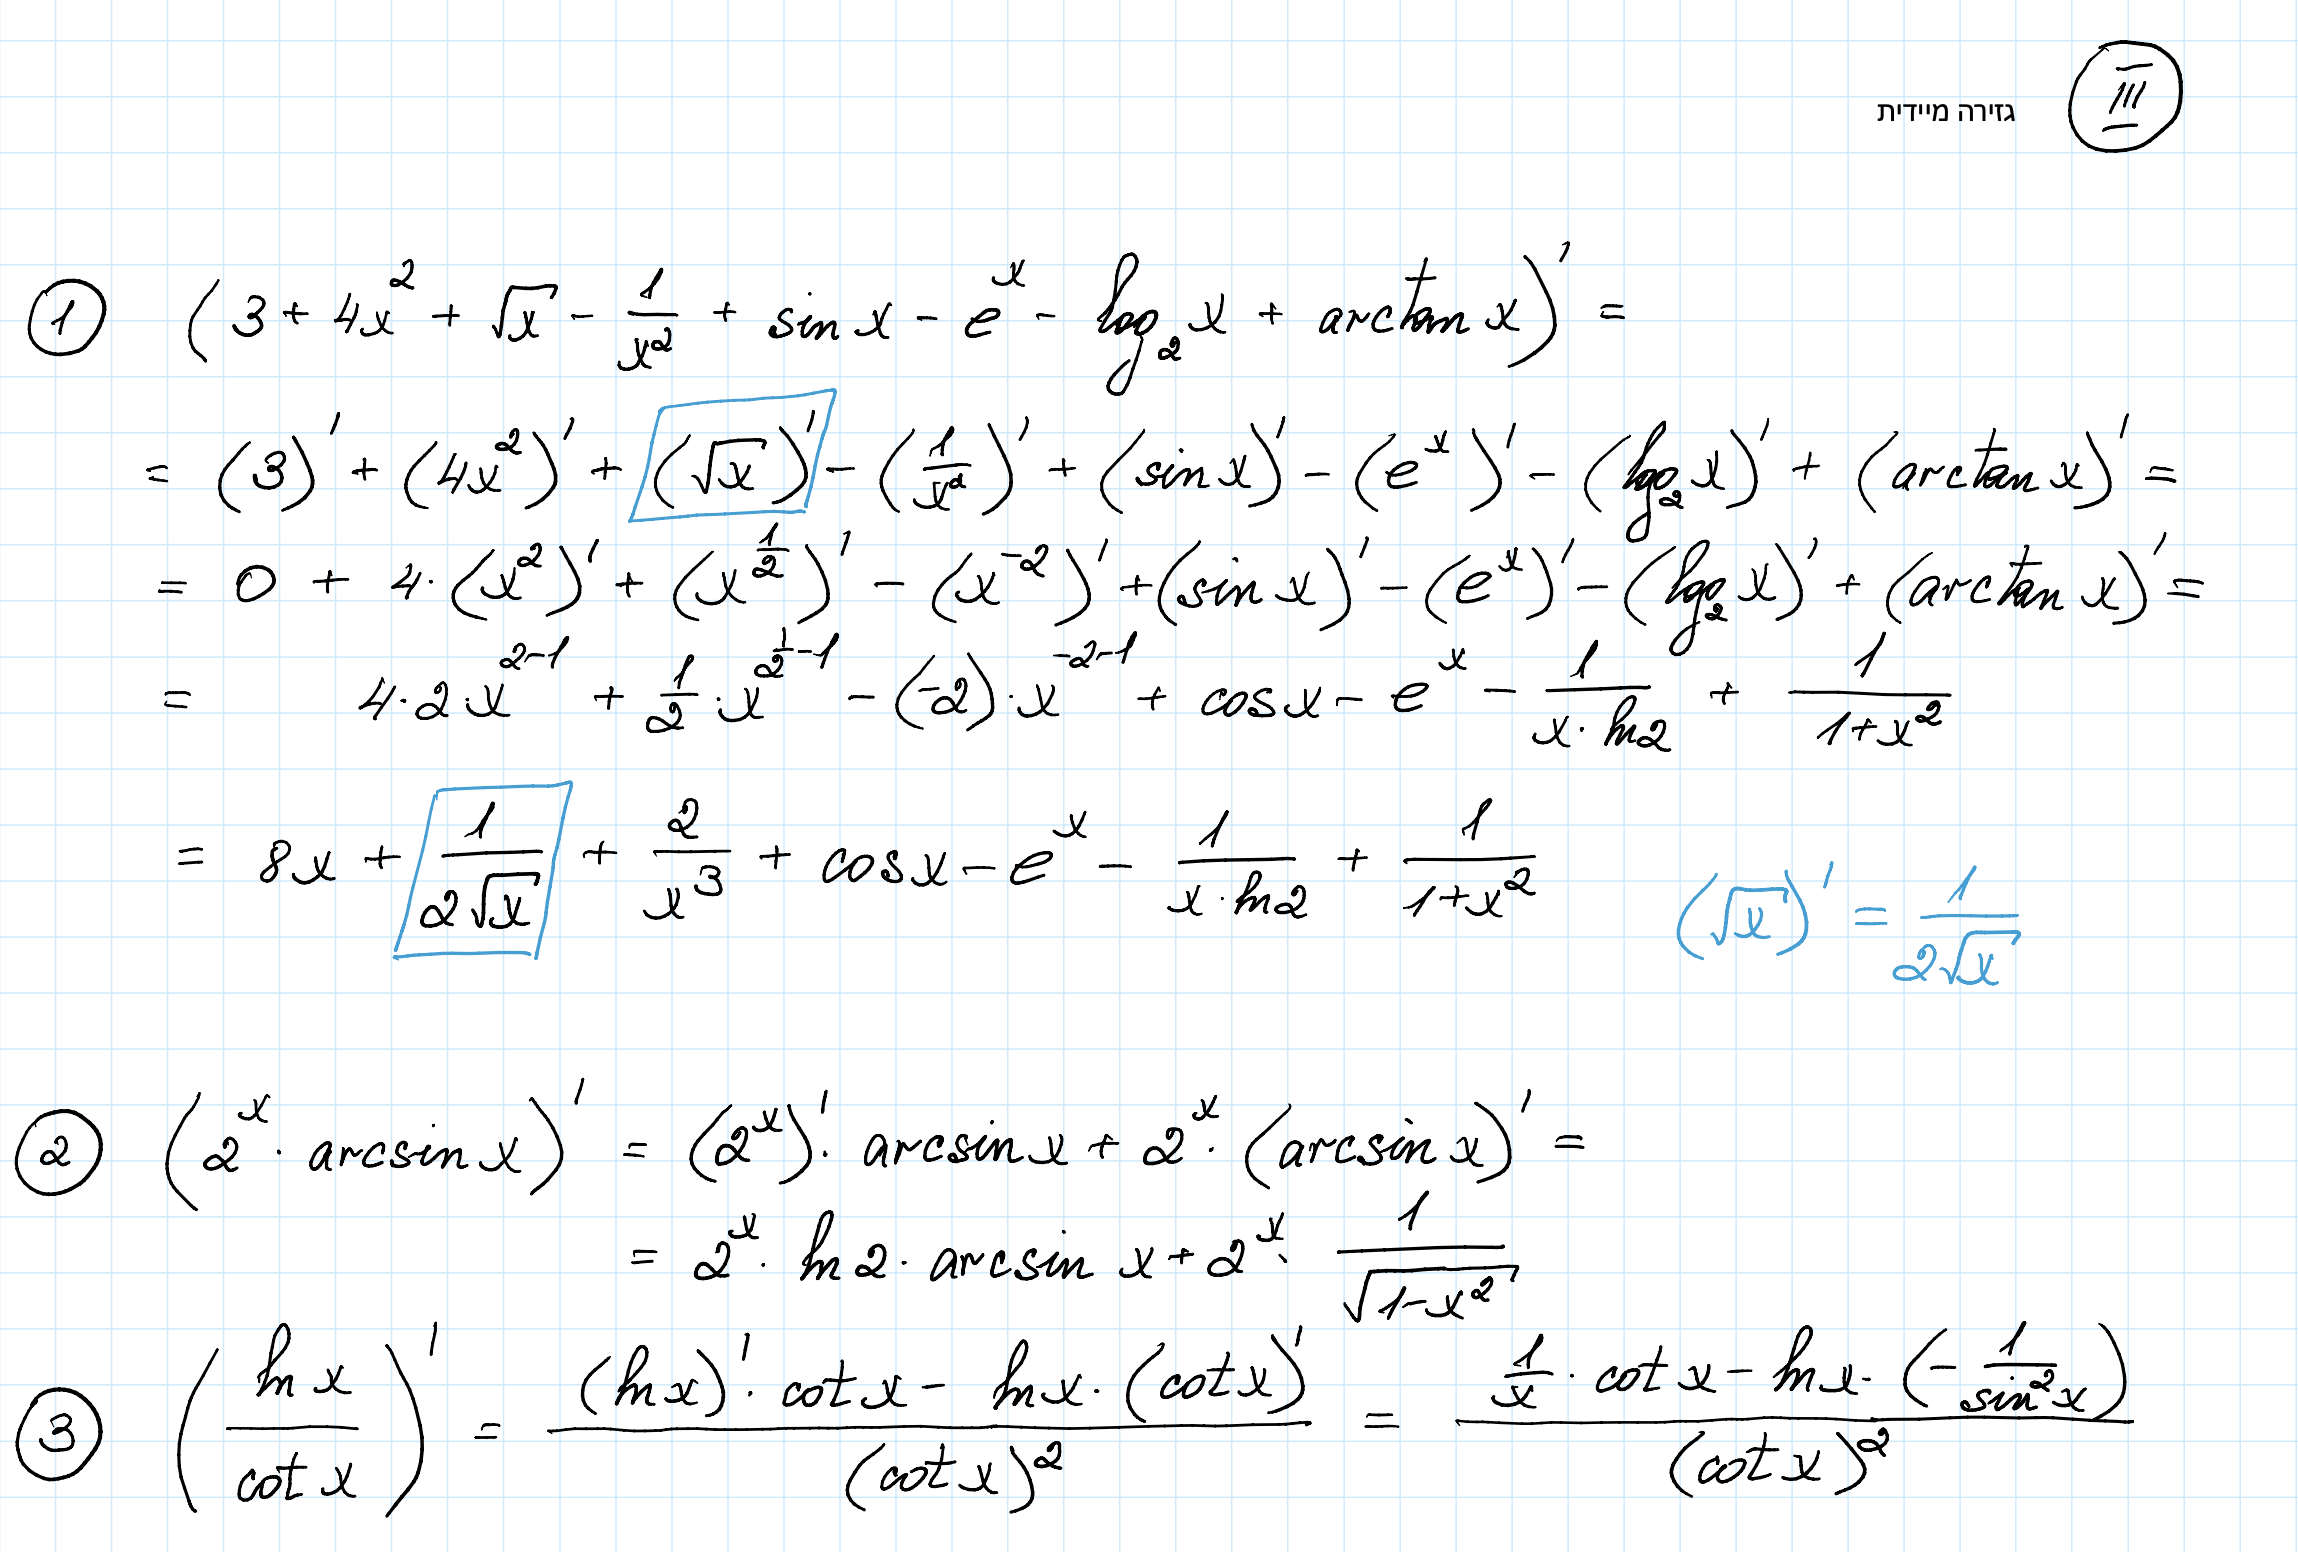 גזירה מיידית III
① (3 + 4x² + √x − 1/x² + sin x − eˣ − log₂ x + arctan x)′ =
= (3)′ + (4x²)′ + (√x)′ − (1/x²)′ + (sin x)′ − (eˣ)′ − (log₂ x)′ + (arctan x)′ =
= 0 + 4·(x²)′ + (x^(1/2))′ − (x⁻²)′ + (sin x)′ − (eˣ)′ − (log₂ x)′ + (arctan x)′ =
= 4·2·x^(2−1) + 1/2·x^(1/2−1) − (−2)·x^(−2−1) + cos x − eˣ − 1/(x·ln2) + 1/(1+x²)
= 8x + 1/(2√x) + 2/x³ + cos x − eˣ − 1/(x·ln2) + 1/(1+x²)
(√x)′ = 1/(2√x)
② (2ˣ · arcsin x)′ = (2ˣ)′· arcsin x + 2ˣ · (arcsin x)′ =
= 2ˣ · ln2 · arcsin x + 2ˣ · 1/√(1−x²)
③ (ln x / cot x)′ = ((ln x)′· cot x − ln x · (cot x)′) / (cot x)² = (1/x · cot x − ln x · (−1/sin²x)) / (cot x)²